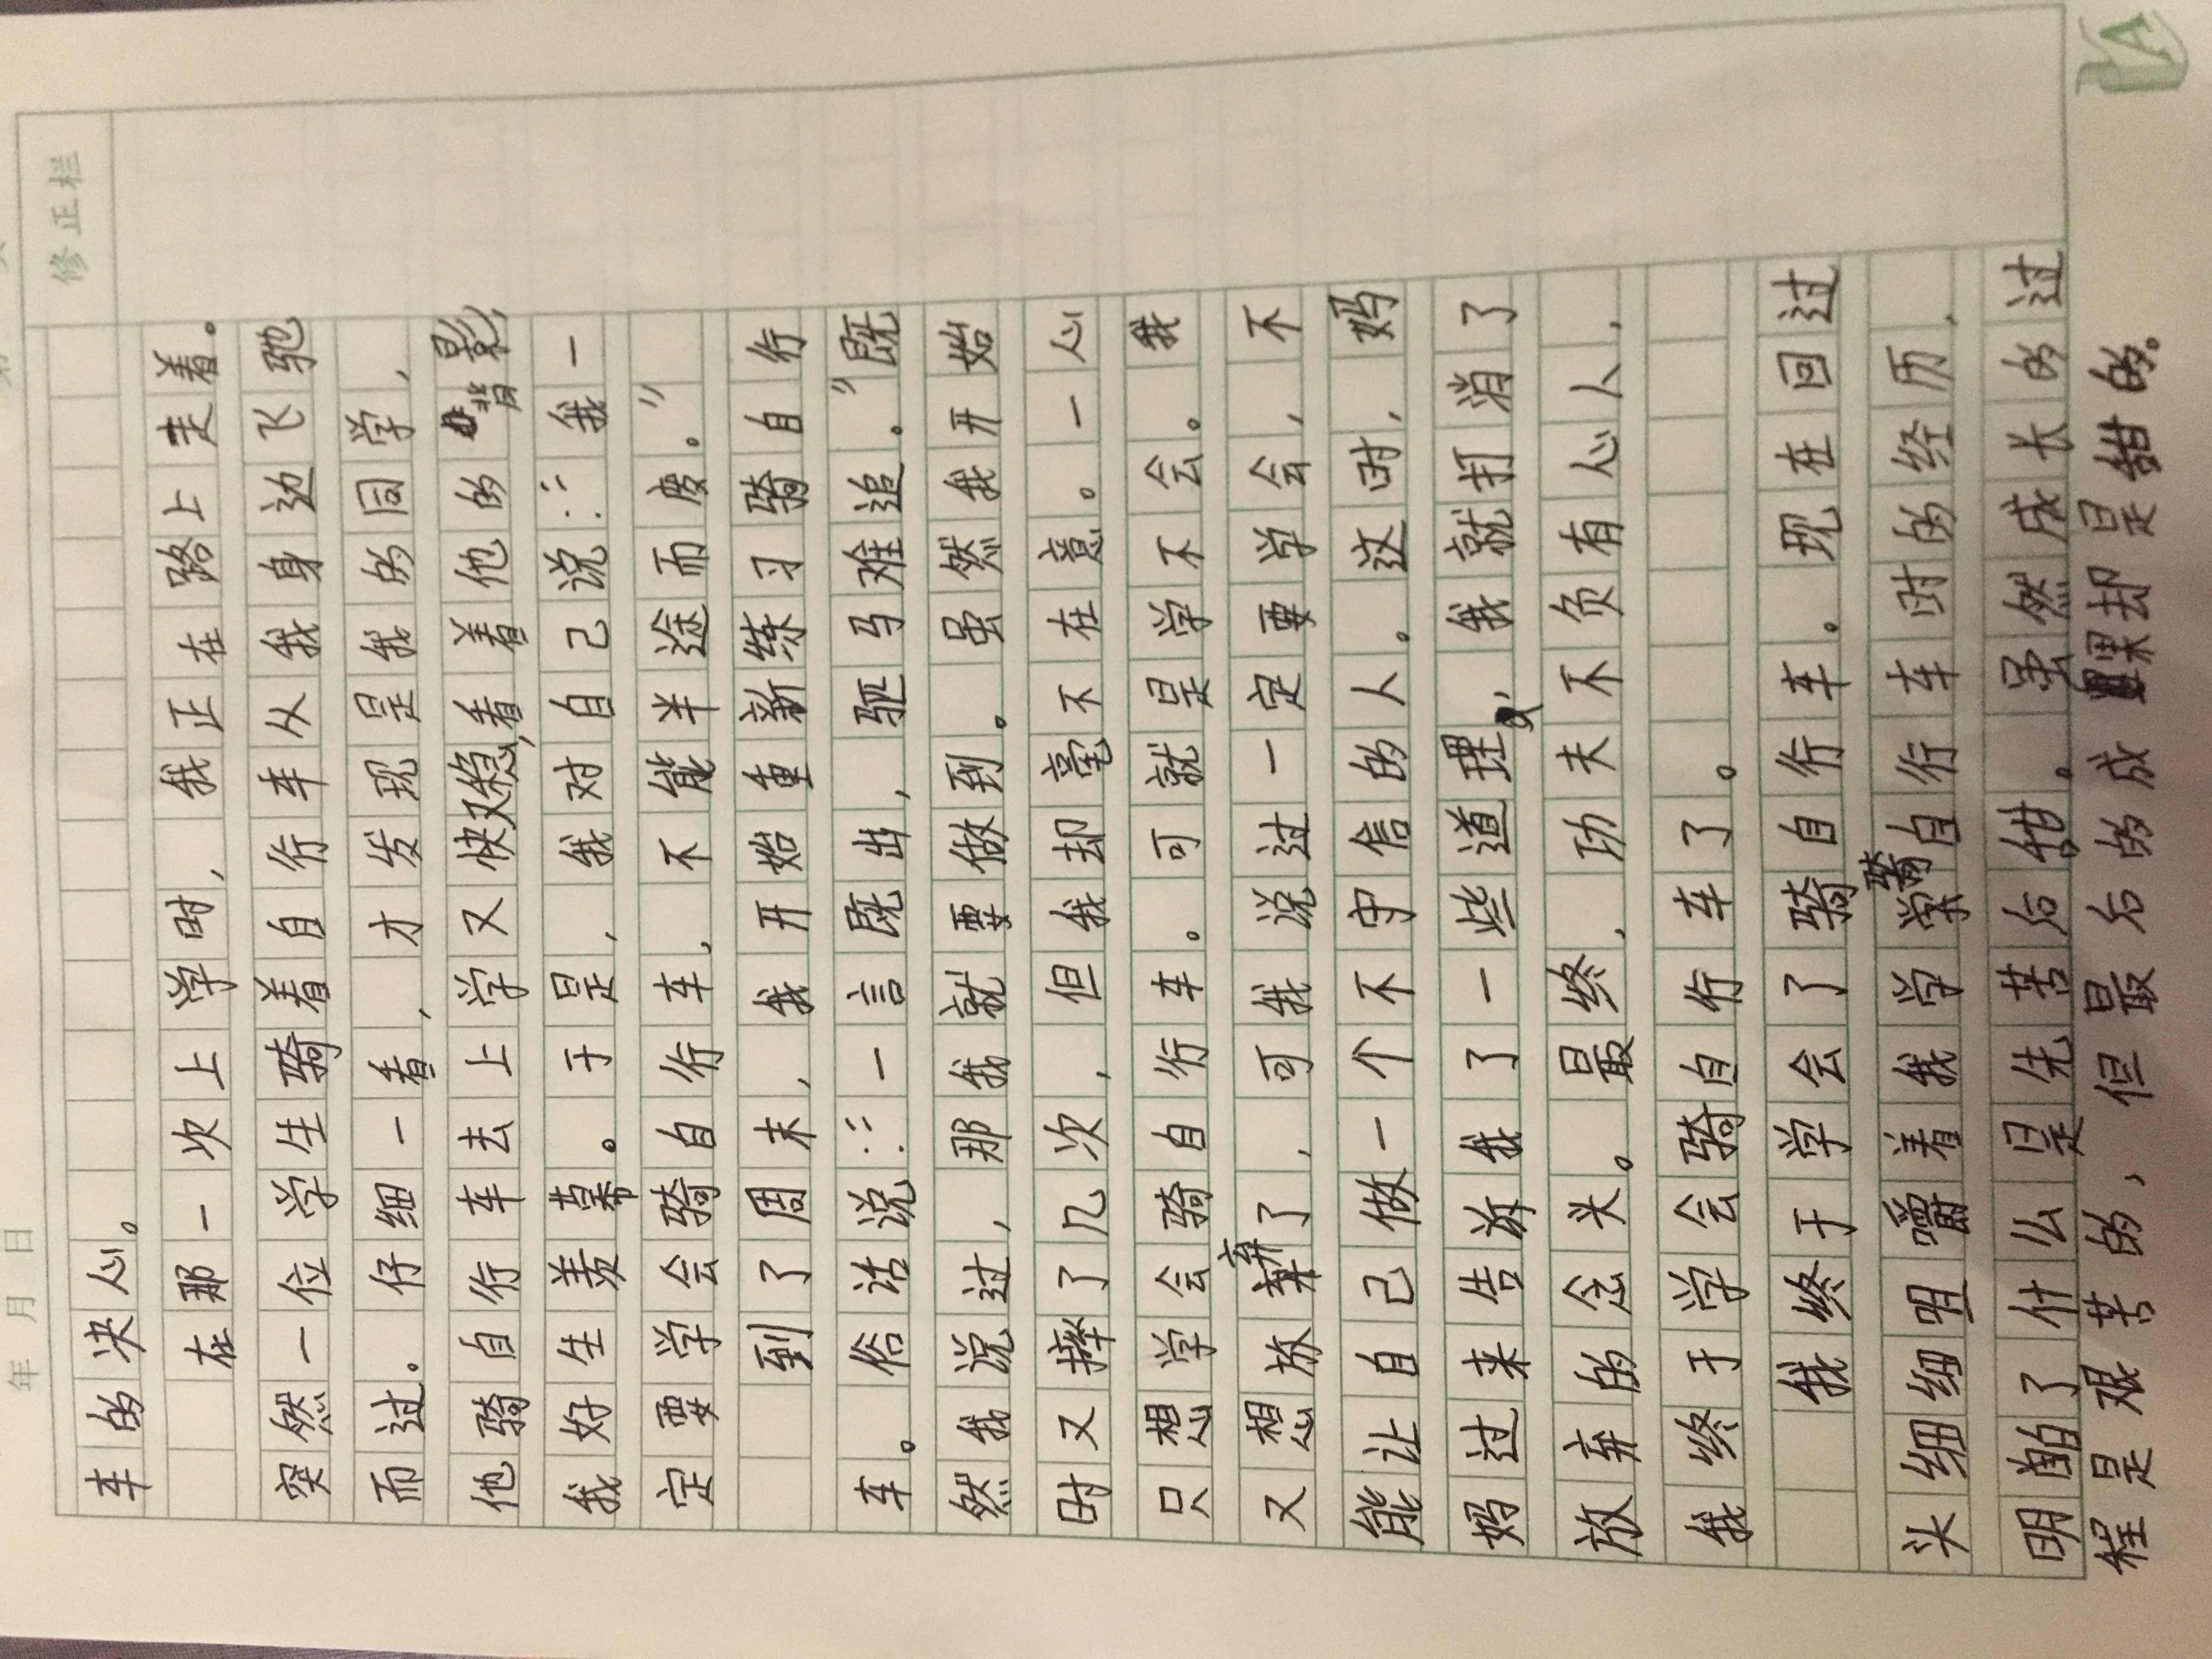 年 月 日
修正栏
车的决心。
在那一次上学时，我正在路上走着。
突然一位学生骑着自行车从我身边飞驰
而过。仔细一看，才发现是我的同学，
他骑自行车去上学又快又稳，看着他的背影，
我好生羡慕。于是，我对自己说：“我一
定要学会骑自行车，不能半途而废。”
到了周末，我开始重新练习骑自行
车。俗话说：“一言既出，驱马难追。”既
然我说过，那我就要做到。虽然我开始
时又摔了几次，但我却毫不在意。一心
只想学会骑自行车。可就是学不会。我
又想放弃了，可我说过一定要学会，不
能让自己做一个不守信的人。这时，妈
妈过来告诉我了一些道理，我就打消了
放弃的念头。最终，功夫不负有心人，
我终于学会骑自行车了。
我终于学会了骑自行车。现在回过
头细细咀嚼着我学骑自行车时的经历，
明白了什么是先苦后甜。虽然成长的过
程是艰苦的，但最后的成果却是甜的。
A